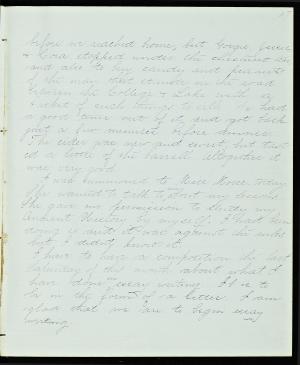 before we reached home, but Georgie, Jessie
& Cora stopped under the chestnut tree
and also to buy candy and peanuts
of the man that stands on the road
between the College & Lake with a
basket of such things to sell. We had
a good time out of it, and got back
just a few minutes before dinner.
The cider was new and sweet, but tasted
a little of the barrel. Altogether it
was very good.
I was summoned to Miss Morse today
She wanted to talk about my lessons.
She gave me permission to study my
Ancient History by myself. I had been
doing so and it was against the rules
but I didn't know it.
I have to have a composition the last
Saturday of this month about what I
have done essay writing. It is to
be in the form of a letter. I am
glad that we are to begin essay
writing.